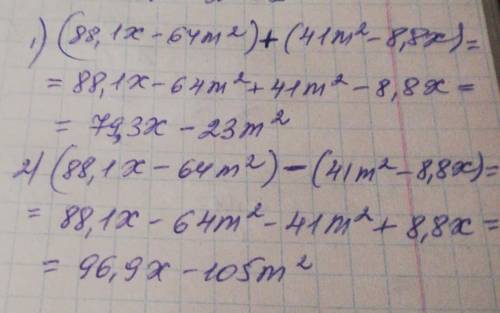 1) (88,1x - 64m²) + (41m² - 8,8x) =
= 88,1x - 64m² + 41m² - 8,8x =
= 79,3x - 23m²
2) (88,1x - 64m²) - (41m² - 8,8x) =
= 88,1x - 64m² - 41m² + 8,8x =
= 96,9x - 105m²